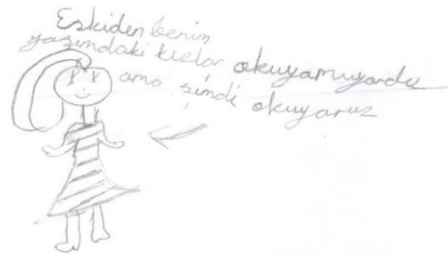 Eskiden benim
yaşımdaki kızlar okuyamuyordu
ama şimdi okuyoruz